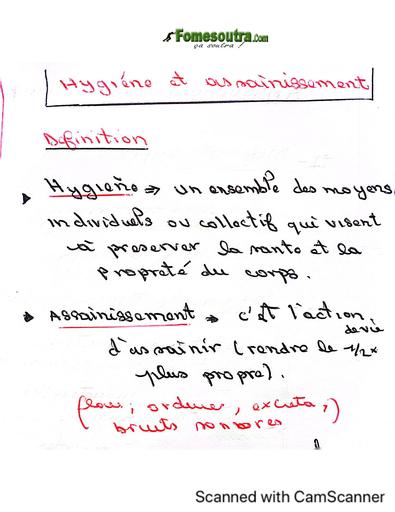 Fomesoutra.com
ça soutra !
Hygiéne et assainissement
Definition
Hygiène ⇒ un ensemble des moyens
individuels ou collectif qui visent
à preserver la sante et la
propreté du corps.
Assainissement → c'est l'action
d'assainir (rendre le
de vie
plus propre).
ordures, excreta,
bruits sonores
Scanned with CamScanner